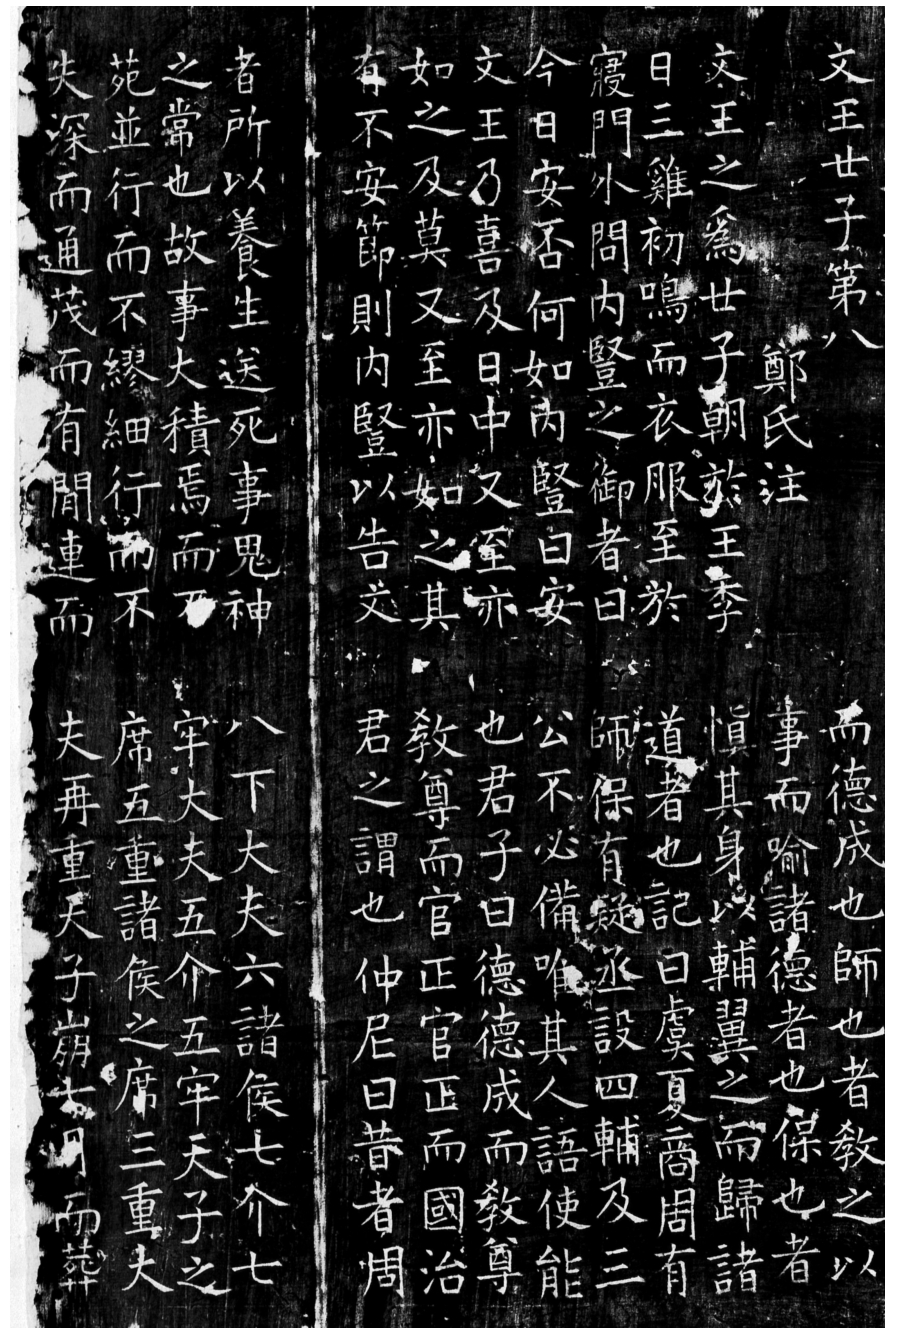 文王廿子第八
鄭氏注
文王之爲廿子朝於王季
日三雞初鳴而衣服至於
寢門外問内豎之御者曰
今日安否何如内豎曰安
文王乃喜及日中又至亦
如之及莫又至亦如之其
有不安節則内豎以告文
而德成也師也者教之以
事而喻諸德者也保也者
慎其身以輔翼之而歸諸
道者也記曰虞夏商周有
師保有疑丞設四輔及三
公不必備唯其人語使能
也君子曰德德成而教尊
教尊而官正官正而國治
君之謂也仲尼曰昔者周
者所以養生送死事鬼神
之常也故事大積焉而不
苑並行而不繆細行而不
失深而通茂而有閒連而
八下大夫六諸侯七介七
牢大夫五介五牢天子之
席五重諸侯之席三重大
夫再重天子崩七月而葬